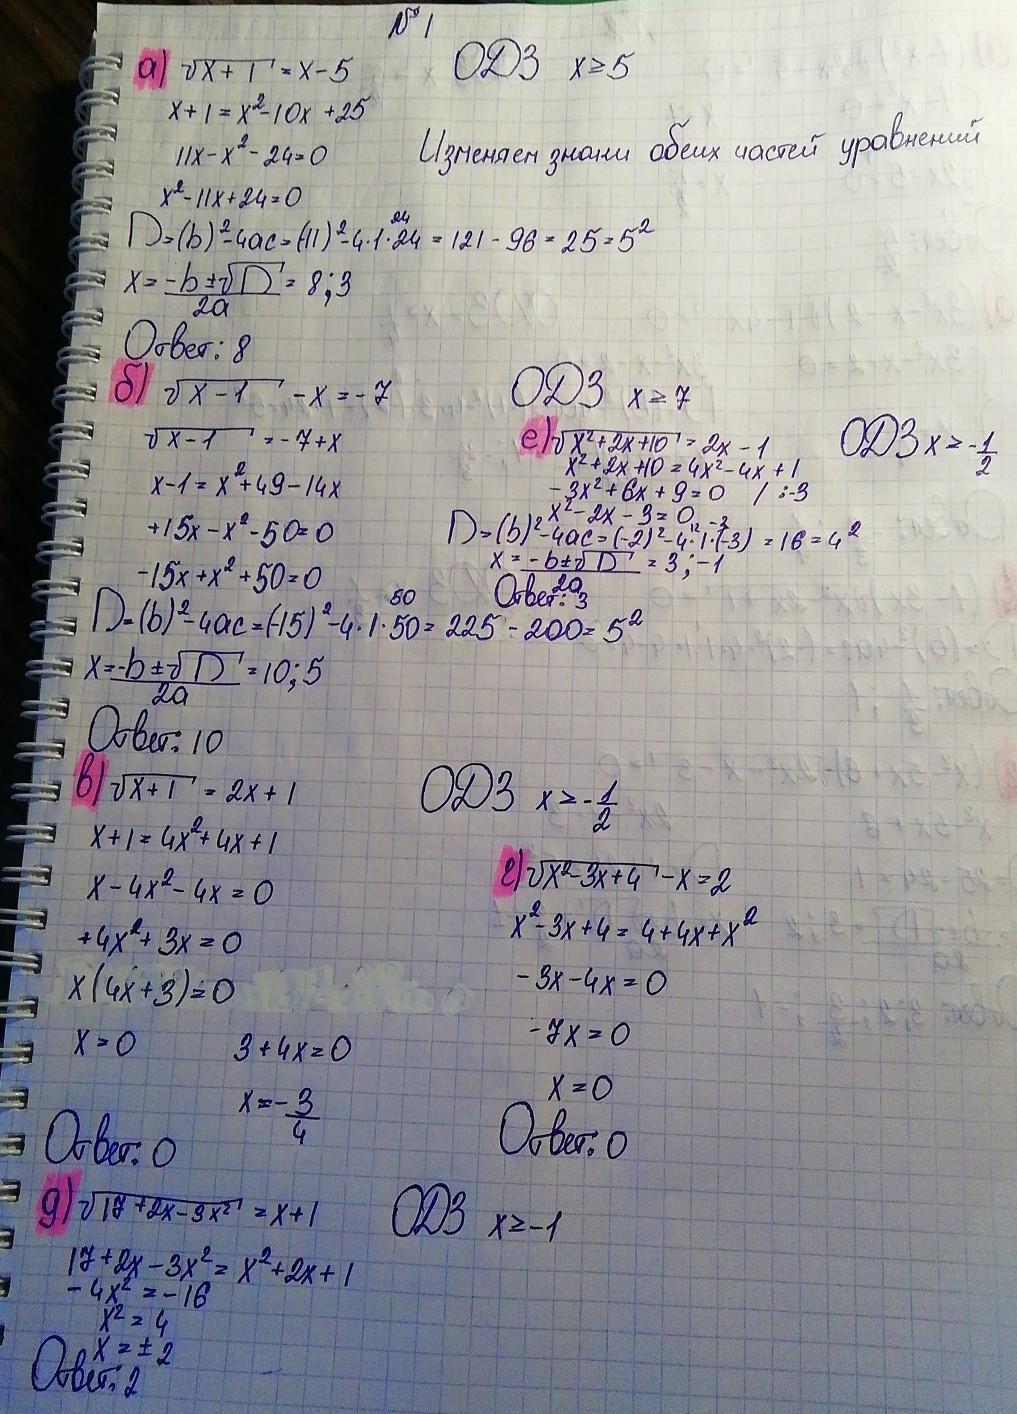 №1
а) √x+1 = x-5 ОДЗ x≥5
x+1 = x²-10x+25
11x-x²-24=0 Изменяем знаки обеих частей уравнений
x²-11x+24=0
D=(b)²-4ac=(-11)²-4·1·24 = 121-96 = 25 = 5²
24
x = -b±√D / 2a = 8;3
Ответ: 8
б) √x-1 -x = -7 ОДЗ x≥7
√x-1 = -7+x
x-1 = x²+49-14x
+15x-x²-50=0
-15x+x²+50=0
D=(b)²-4ac=(-15)²-4·1·50 = 225-200 = 5²
50
x = -b±√D / 2a = 10;5
Ответ: 10
е) √x²+2x+10 = 2x-1 ОДЗ x≥-1/2
x²+2x+10 = 4x²-4x+1
-3x²+6x+9=0 /:-3
x²-2x-3=0
D=(b)²-4ac=(-2)²-4·1·(-3) = 16 = 4²
12 -3
x = -b±√D / 2a = 3;-1
Ответ: 3
в) √x+1 = 2x+1 ОДЗ x≥-1/2
x+1 = 4x²+4x+1
x-4x²-4x=0
+4x²+3x=0
x(4x+3)=0
x=0 3+4x=0
x=-3/4
Ответ: 0
г) √x²-3x+4 -x=2
x²-3x+4 = 4+4x+x²
-3x-4x=0
-7x=0
x=0
Ответ: 0
д) √17+2x-3x² = x+1 ОДЗ x≥-1
17+2x-3x² = x²+2x+1
-4x² = -16
x² = 4
x = ±2
Ответ: 2